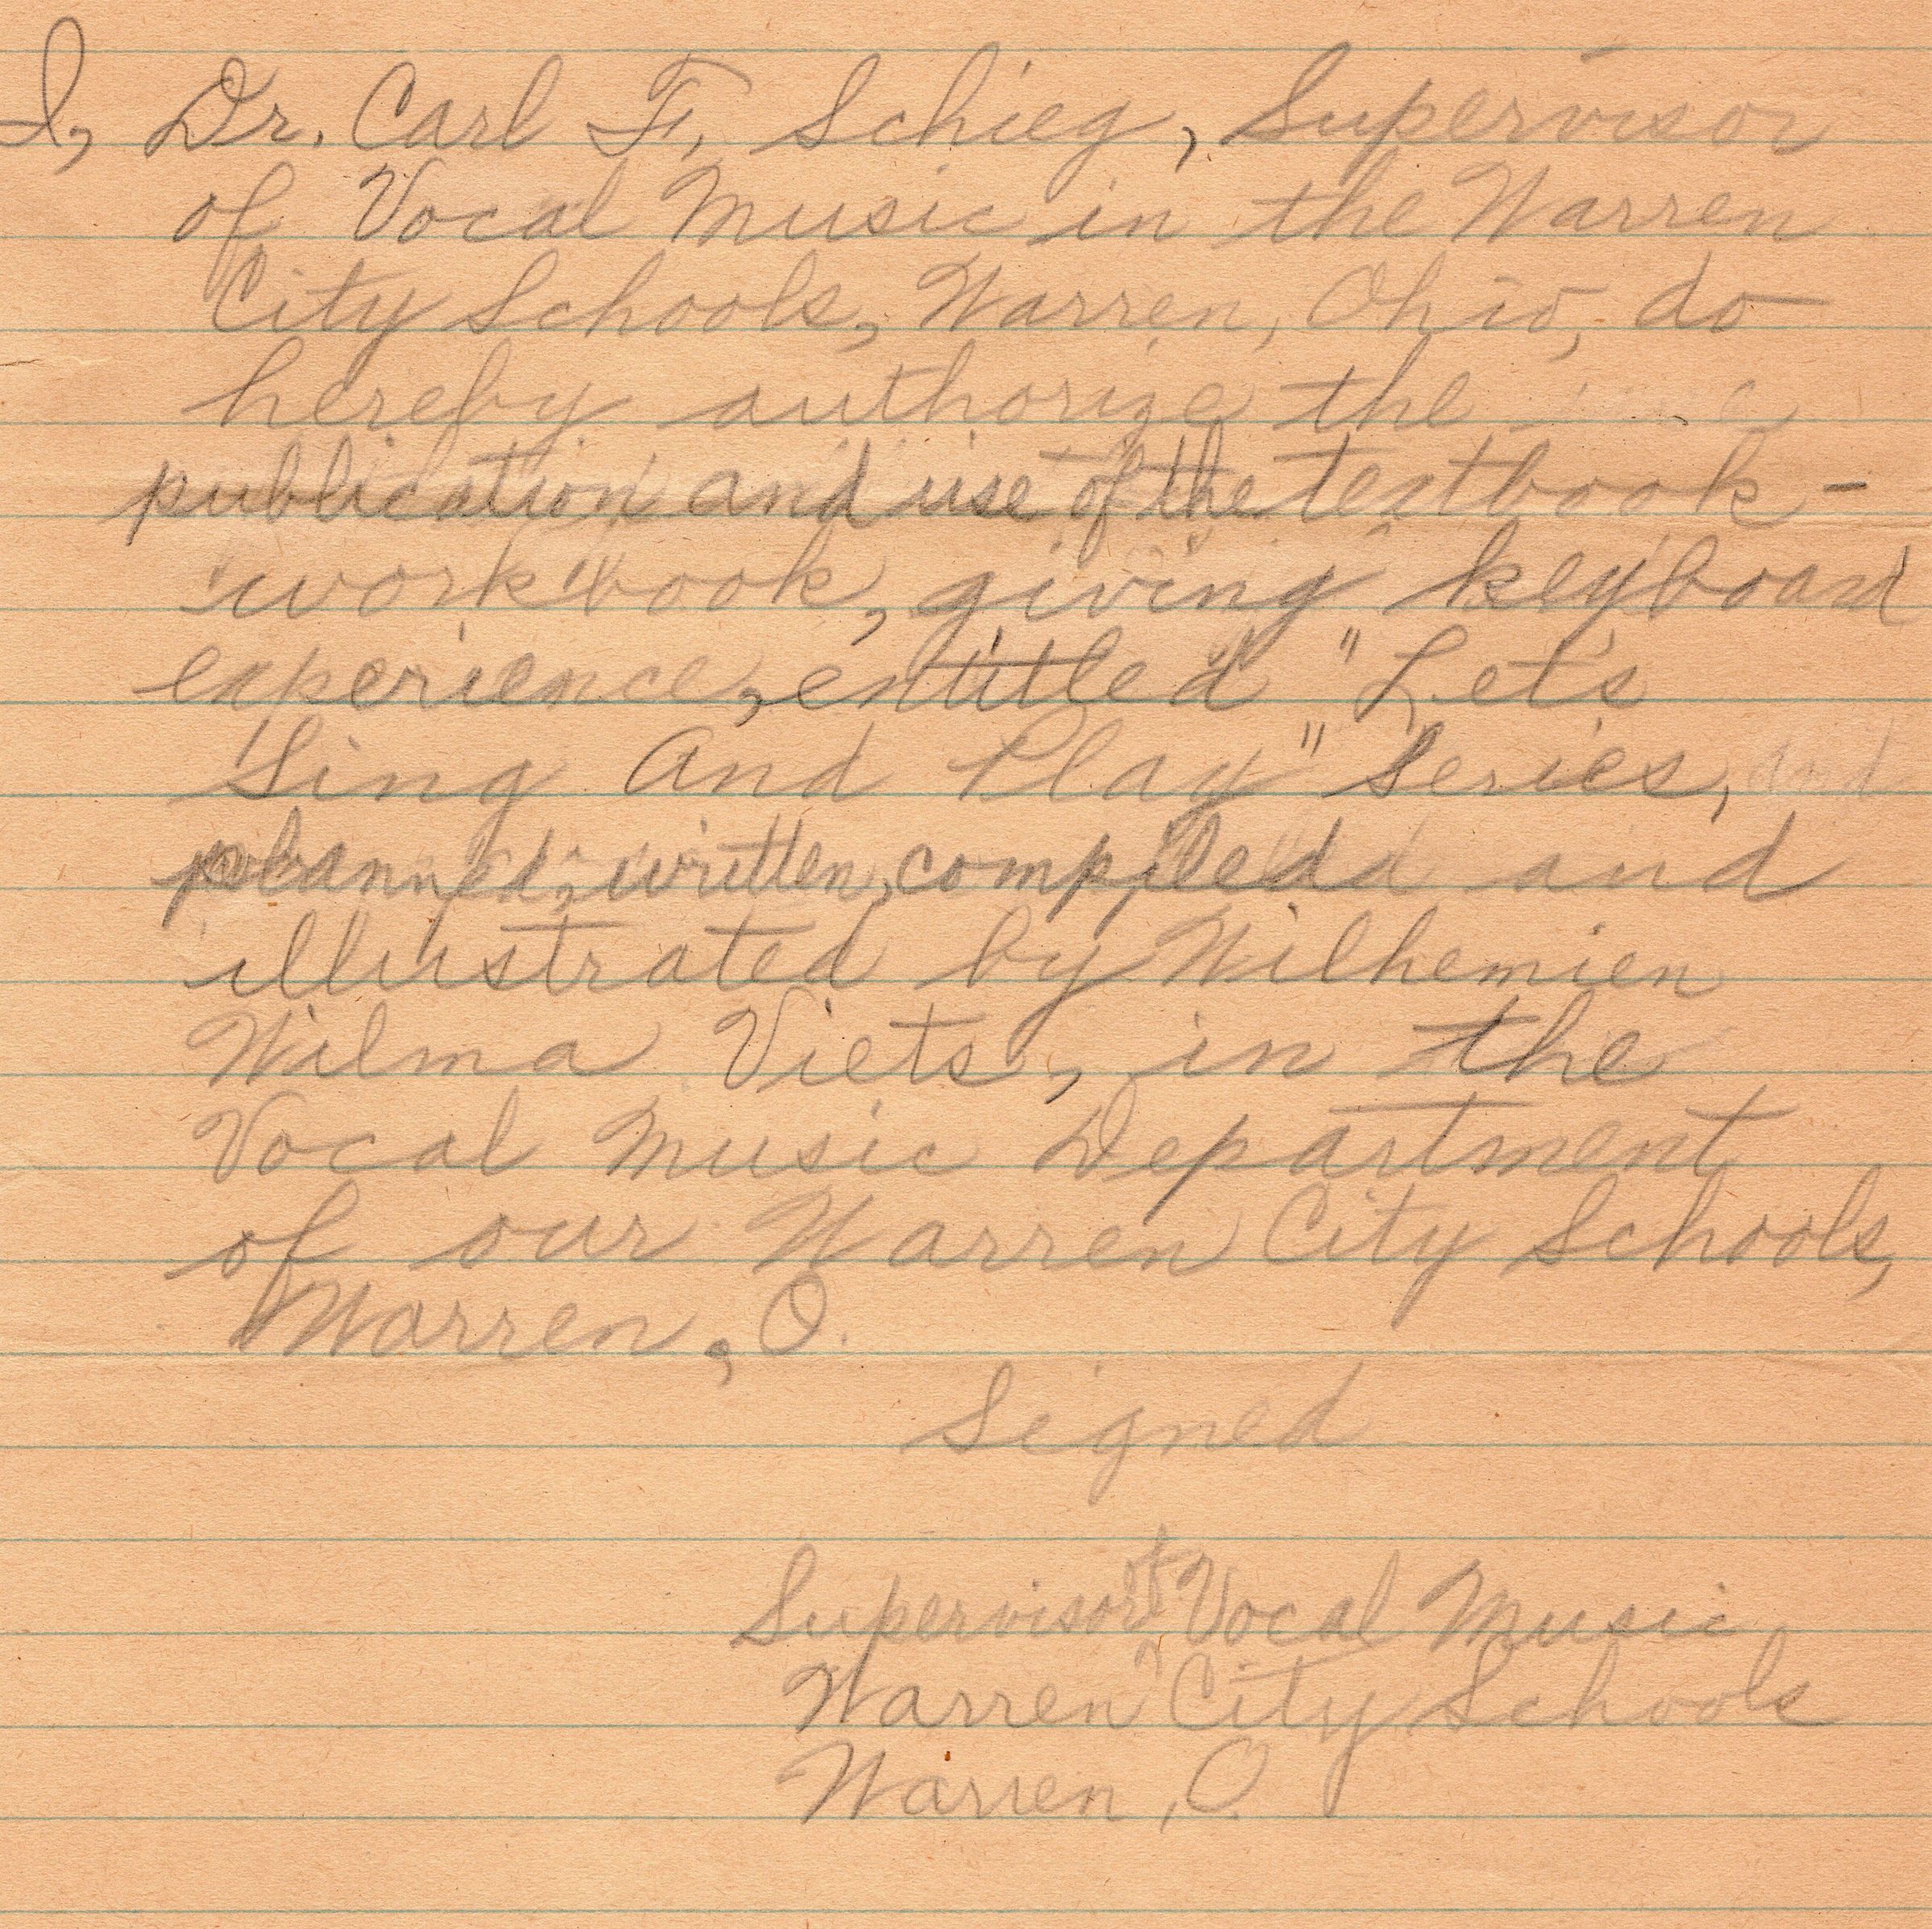 I, Dr. Carl F. Schieg, Supervisor
of Vocal Music in the Warren
City Schools, Warren, Ohio, do
hereby authorize the
publication and use of the textbook-
workbook, giving keyboard
experience, entitled "Let's
Sing And Play" Series, and
planned, written, compiled and
illustrated by Wilhemien
Wilma Viets, in the
Vocal Music Department
of our Warren City Schools,
Warren, O.
Signed
Supervisor of Vocal Music
Warren City Schools
Warren, O.